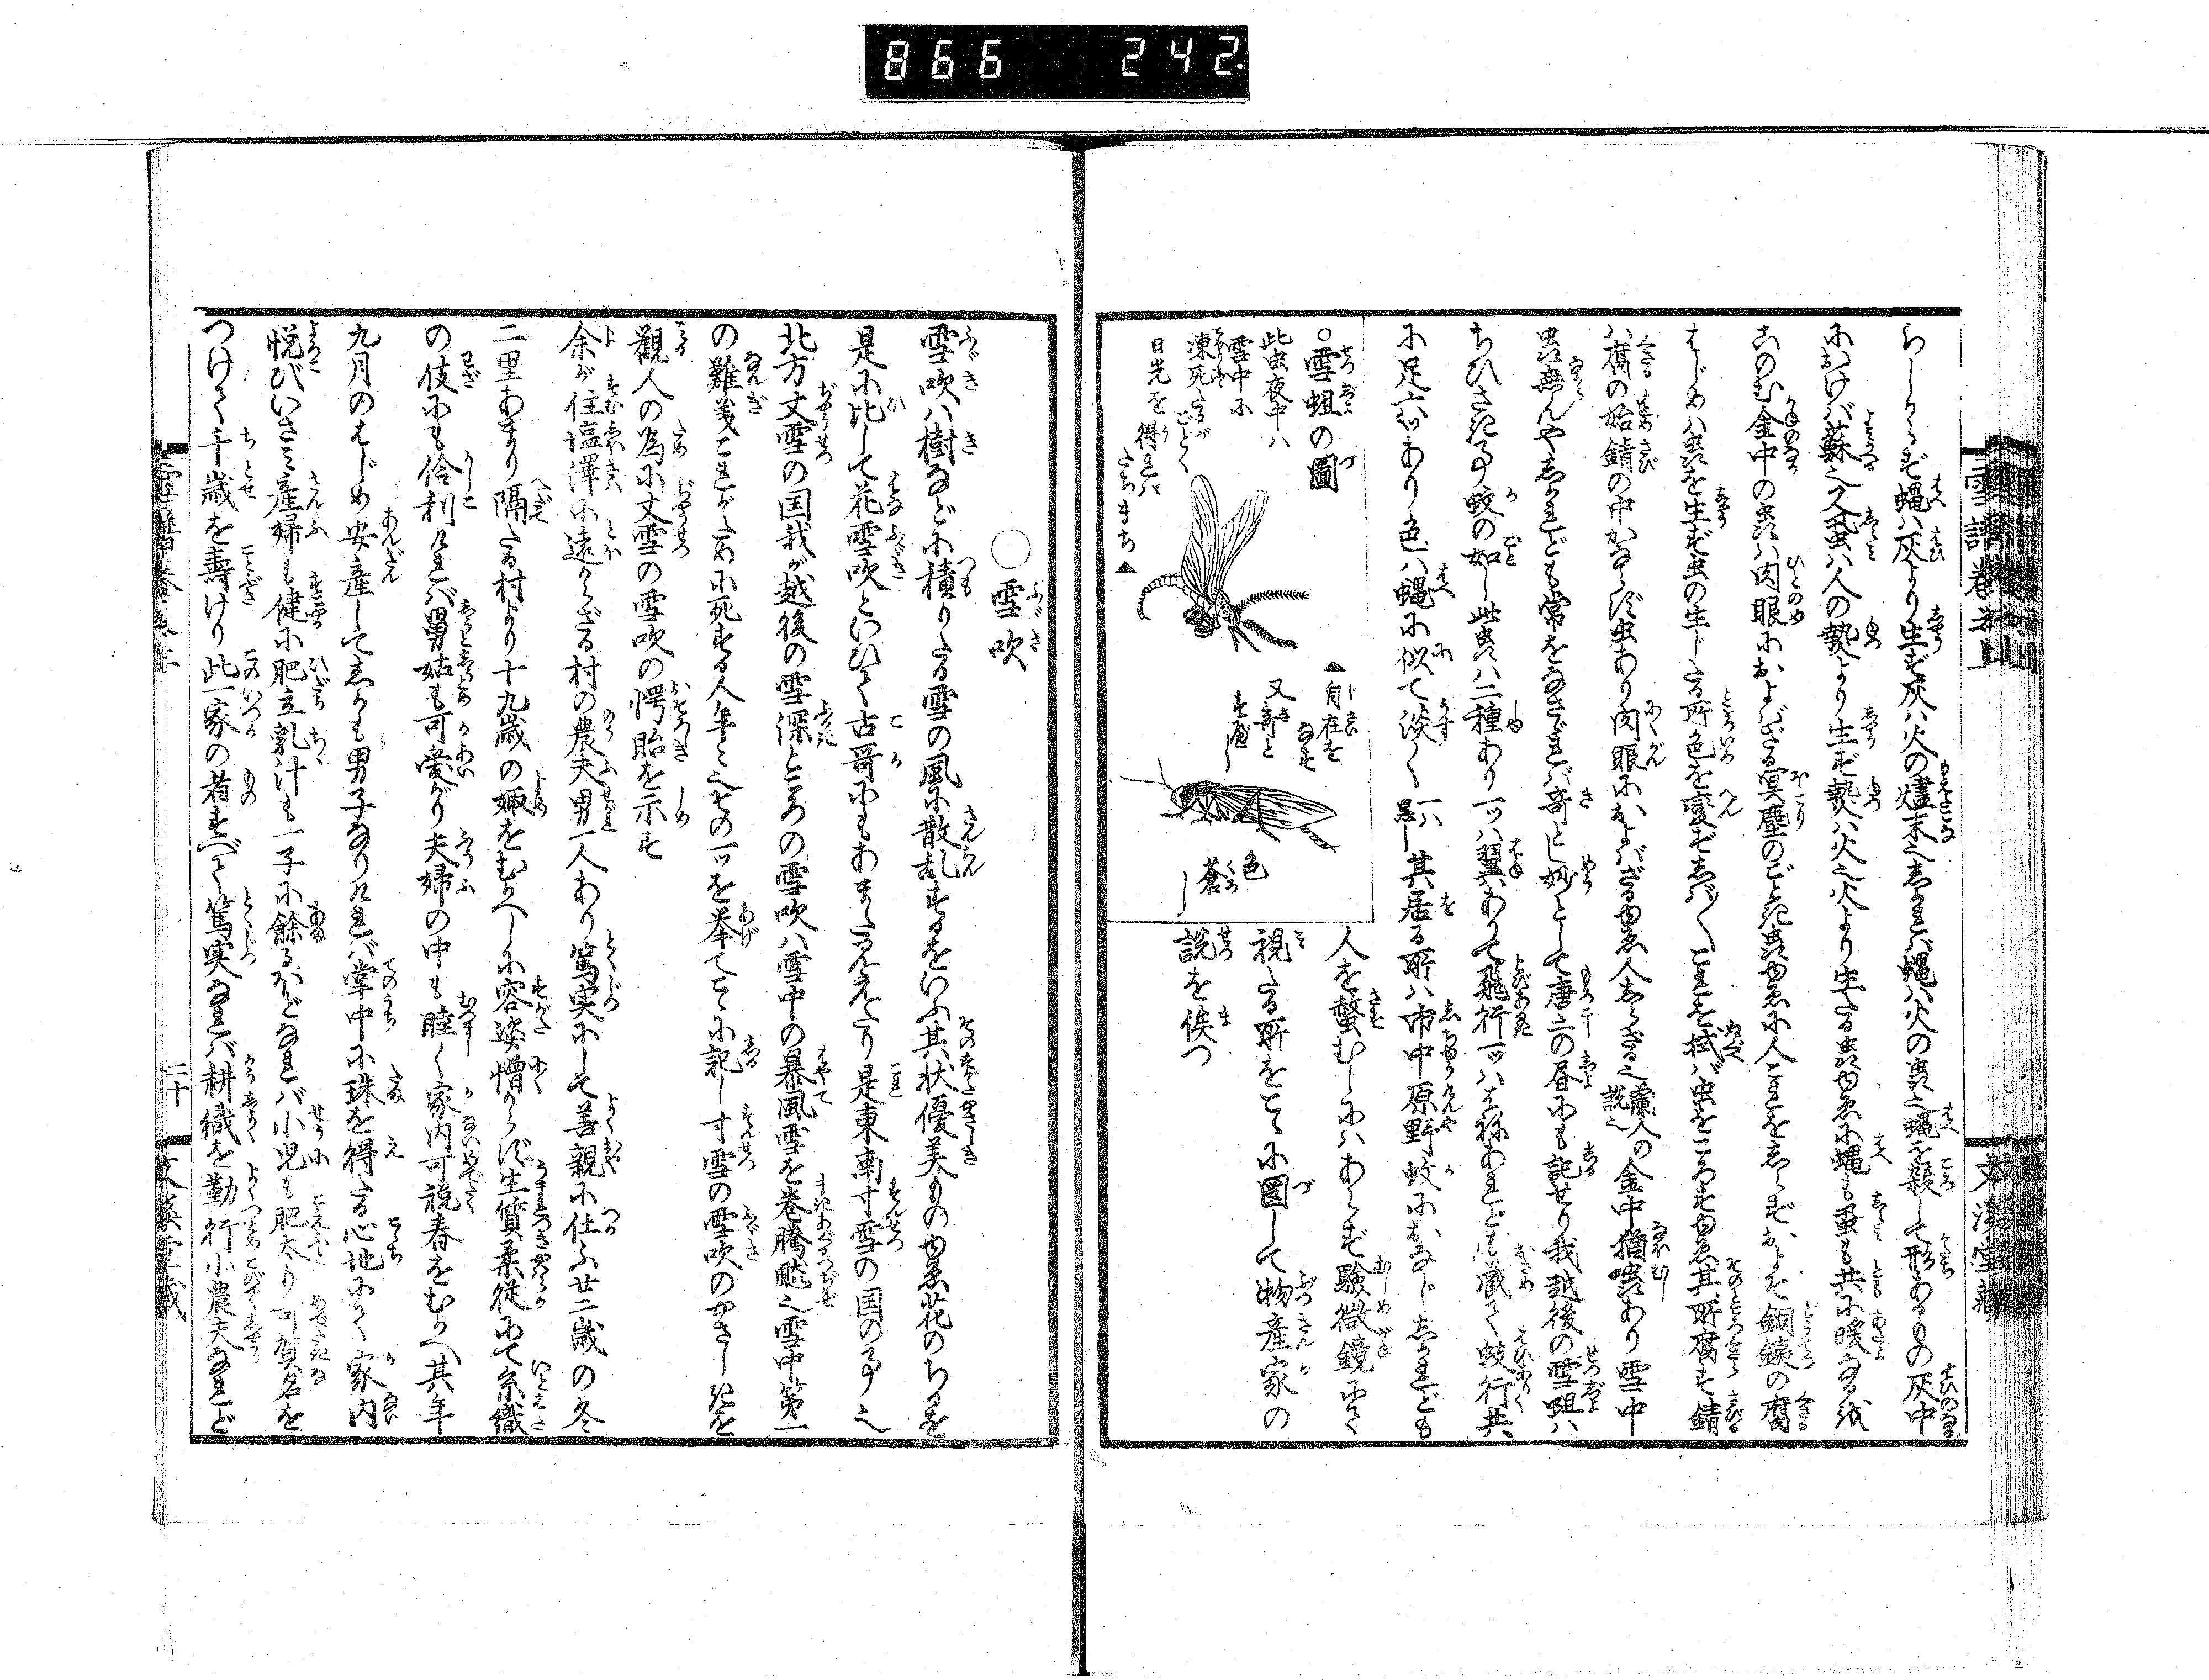 866 242
雪譜巻之上
文溪堂藏
らしからず蠅ハ灰より生ず灰ハ火の燼末也しかれバ蠅ハ火の虫也蠅を殺して形あるもの灰中
におけバ蘇也又虱ハ人の熱より生ず熱ハ火也火より生たる虫ゆゑに蠅も虱も共に暖なるを
このむ金中の虫ハ肉眼におよばざる冥塵のごとき虫ゆゑに人これをしらずおよそ銅鉄の腐
はじめハ虫を生ず虫の生じたる所色を変ずしば〱これを拭バ虫をころすゆゑ其所腐ず錆
ハ腐の始錆の中かならず虫あり肉眼におよばざるゆゑ人しらざる也蘭人の説也金中猶虫あり雪中
虫無んやしかれども常をなさゞれバ奇とし妙として唐土の書にも記せり我越後の雪蛆ハ
ちひさき事蚊の如し此虫ハ二種あり一ツハ翼ありて飛行一ツハはねあれども蔵て蚑行共
に足六ツあり色ハ蠅に似て淡く一ハ黒し其居る所ハ市中原野蚊におなじしかれども
人を螫むしにハあらず験微鏡にて
視たる所をこゝに圖して物産家の
説を俟つ
○雪蛆の圖
此虫夜中ハ
雪中に
凍死たるが
ごとく
日光を得れバ
たちまち▲
▲自在を
なす
又奇と
すべし
色
蒼し
○雪吹
雪吹ハ樹などに積りたる雪の風に散乱するをいふ其状優美ものゆゑ花のちるを
是に比して花雪吹といひて古哥にもあまたみえたり是東南寸雪の国の事也
北方丈雪の国我が越後の雪深ところの雪吹ハ雪中の暴風雪を巻騰飈也雪中第一
の難義これがために死する人年〻也その一ツを挙てこゝに記し寸雪の雪吹のやさしきを
觀人の為に丈雪の雪吹の愕眙を示す
余が住塩澤に遠からざる村の農夫男一人あり篤実にして善親に仕ふ廿二歳の冬
二里あまり隔たる村より十九歳の娵をむかへしに容姿憎からず生質柔従にて糸織
の伎にも伶利けれバ舅姑も可愛がり夫婦の中も睦く家内可祝春をむかへ其年
九月のはじめ安産してしかも男子なりけれバ掌中に珠を得たる心地にて家内
悦びいさみ産婦も健に肥立乳汁も一子に餘るほどなれバ小児も肥太り可賀名を
つけて千歳を壽けり此一家の者すべて篤実なれバ耕織を勤行小農夫なれど
二十
文溪堂藏